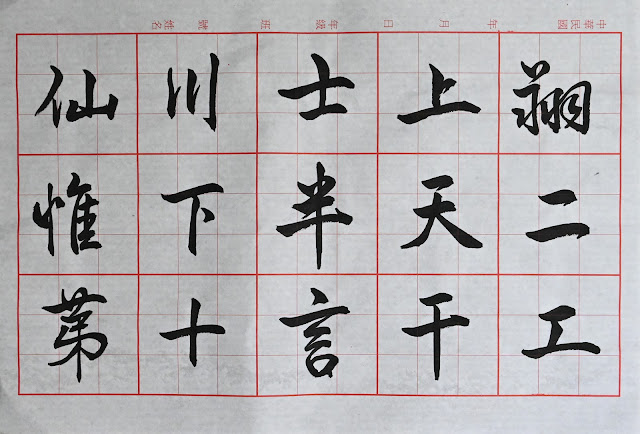 中華民國　年　月　日　年級　班　號　姓名
翔二工
上天干
士半言
川下十
仙惟第